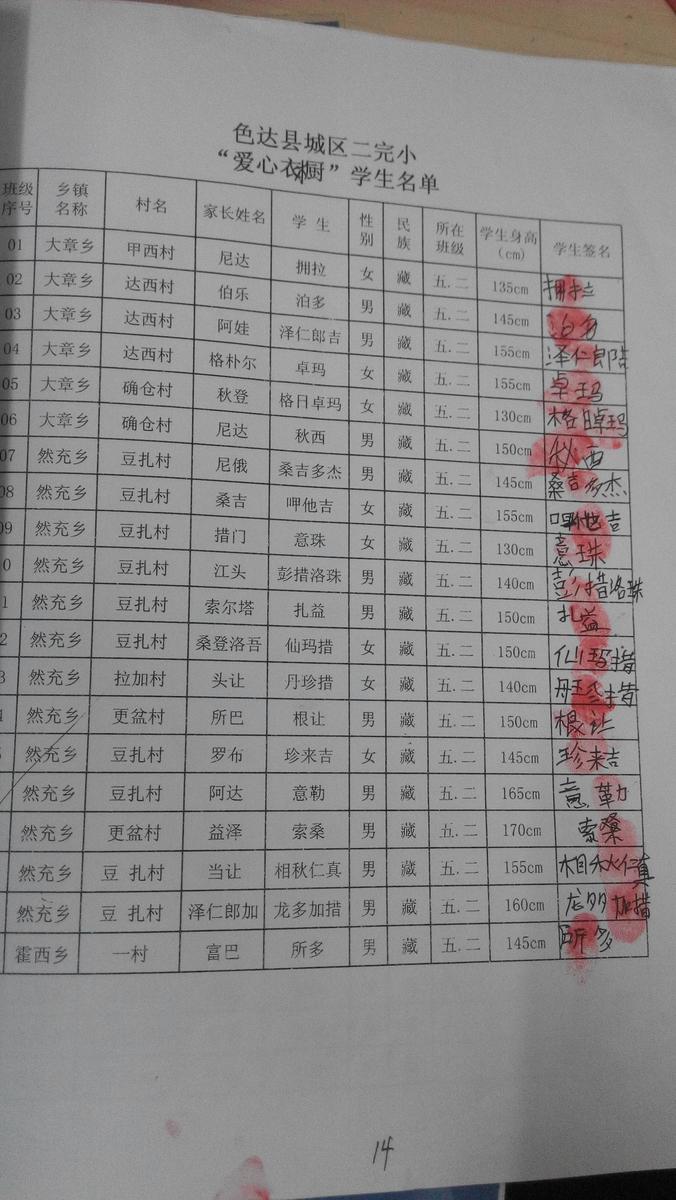 色达县城区二完小
“爱心衣橱”学生名单
班级序号 乡镇名称 村名 家长姓名 学 生 性别 民族 所在班级 学生身高(cm) 学生签名
01 大章乡 甲西村 尼达 拥拉 女 藏 五.二 135cm 拥拉
02 大章乡 达西村 伯乐 泊多 男 藏 五.二 145cm 泊多
03 大章乡 达西村 阿娃 泽仁郎吉 男 藏 五.二 155cm 泽仁郎吉
04 大章乡 达西村 格朴尔 卓玛 女 藏 五.二 155cm 卓玛
05 大章乡 确仓村 秋登 格日卓玛 女 藏 五.二 130cm 格日卓玛
06 大章乡 确仓村 尼达 秋西 男 藏 五.二 150cm 秋西
07 然充乡 豆扎村 尼俄 桑吉多杰 男 藏 五.二 145cm 桑吉多杰
08 然充乡 豆扎村 桑吉 呷他吉 女 藏 五.二 155cm 呷他吉
09 然充乡 豆扎村 措门 意珠 女 藏 五.二 130cm 意珠
0 然充乡 豆扎村 江头 彭措洛珠 男 藏 五.二 140cm 彭措洛珠
1 然充乡 豆扎村 索尔塔 扎益 男 藏 五.二 150cm 扎益
2 然充乡 豆扎村 桑登洛吾 仙玛措 女 藏 五.二 150cm 仙玛措
3 然充乡 拉加村 头让 丹珍措 女 藏 五.二 140cm 丹珍措
4 然充乡 更盆村 所巴 根让 男 藏 五.二 150cm 根让
然充乡 豆扎村 罗布 珍来吉 女 藏 五.二 145cm 珍来吉
然充乡 豆扎村 阿达 意勒 男 藏 五.二 165cm 意勒
然充乡 更盆村 益泽 索桑 男 藏 五.二 170cm 索桑
然充乡 豆 扎村 当让 相秋仁真 男 藏 五.二 155cm 相秋仁真
然充乡 豆 扎村 泽仁郎加 龙多加措 男 藏 五.二 160cm 龙多加措
霍西乡 一村 富巴 所多 男 藏 五.二 145cm 所多
14